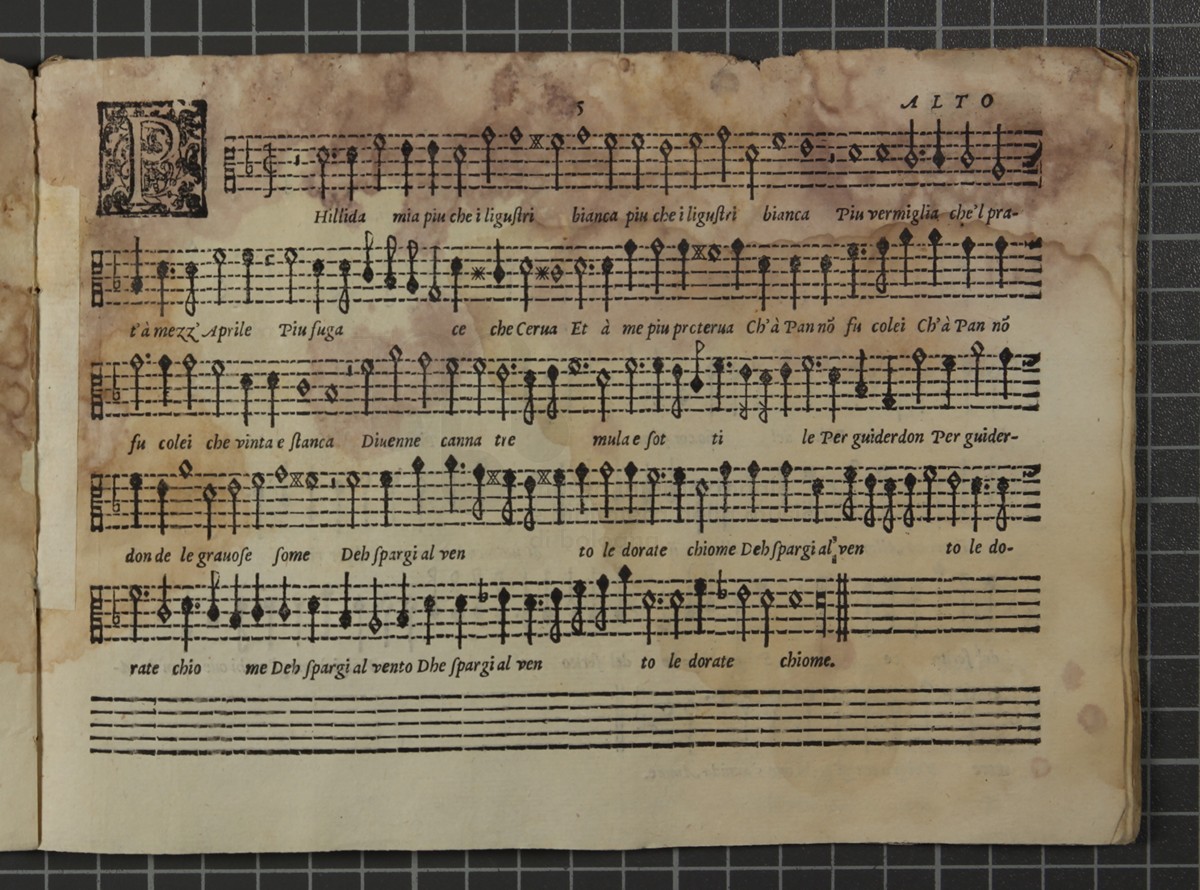 5 ALTO
PHillida mia piu che i liguſtri bianca piu che i liguſtri bianca Piu vermiglia che'l pra-
t'à mezz' Aprile Piu fuga ce che Cerua Et à me piu proterua Ch'à Pan nõ fu colei Ch'à Pan nõ
fu colei che vinta e ſtanca Diuenne canna tre mula e ſot ti le Per guiderdon Per guider-
don de le grauoſe ſome Deh ſpargi al ven to le dorate chiome Deh ſpargi al ven to le do-
rate chio me Deh ſpargi al vento Dhe ſpargi al ven to le dorate chiome.